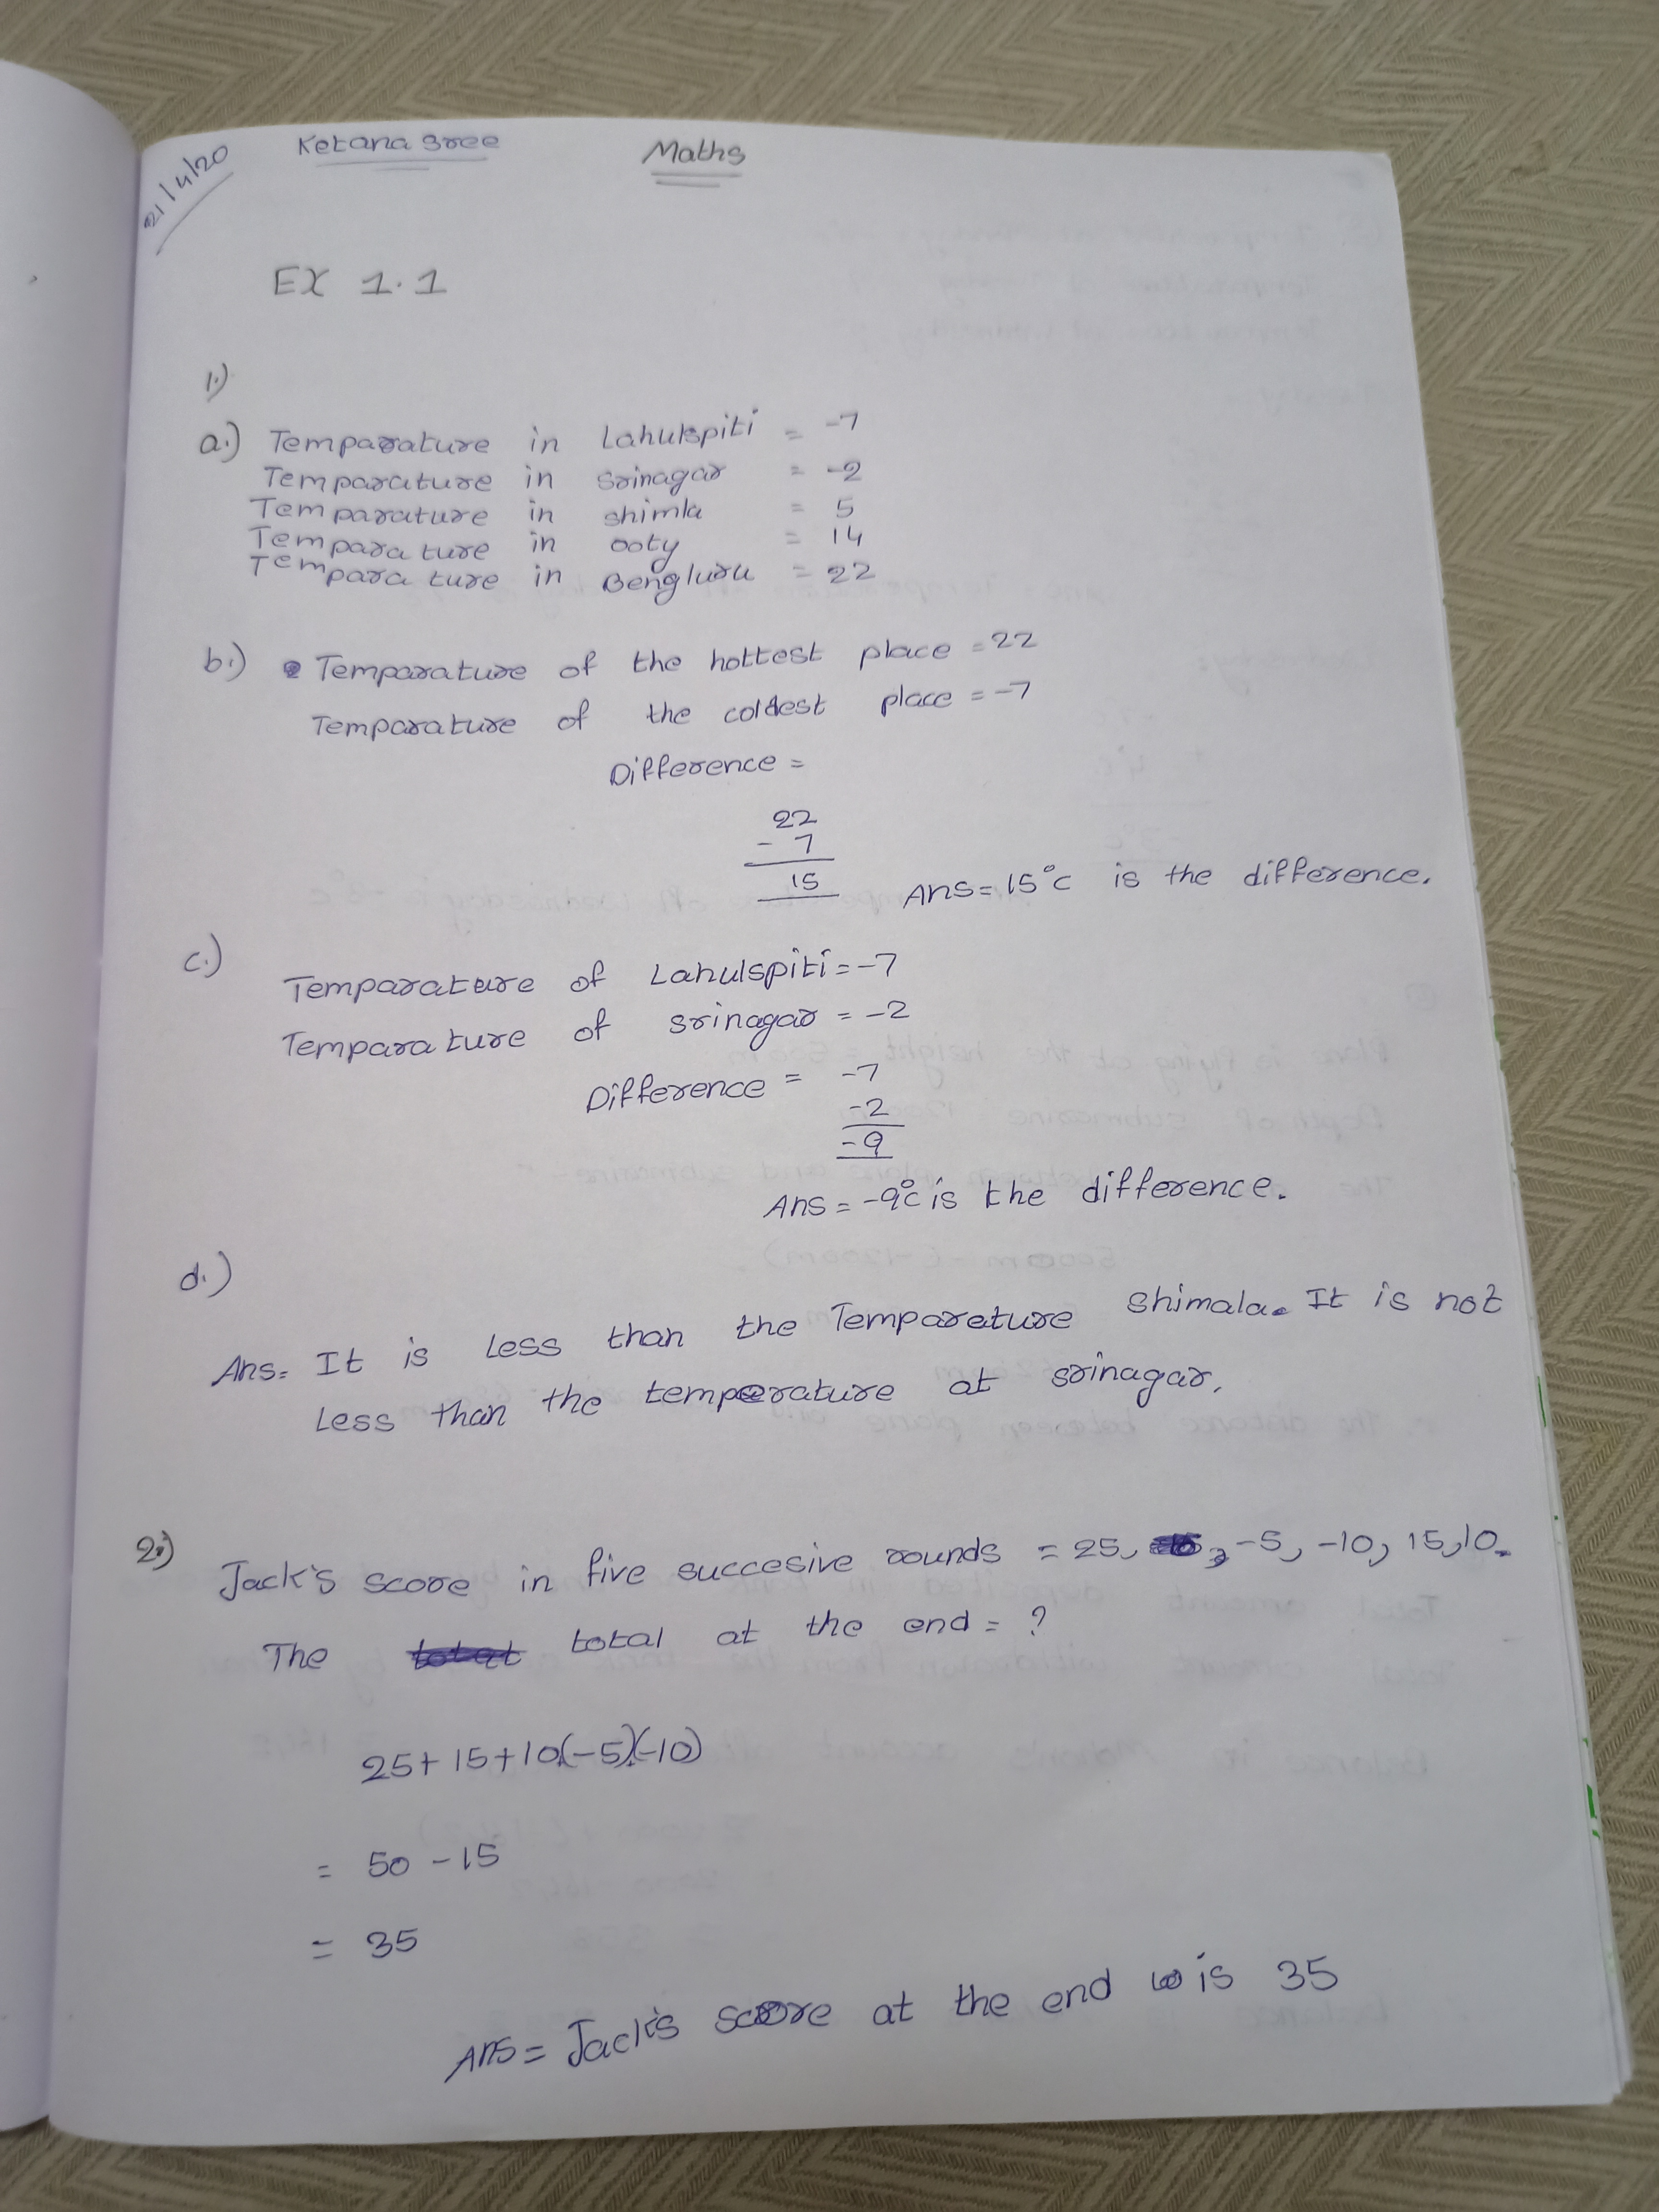 21/4/20
Ketana sree
Maths
EX 1.1
1.)
a.) Temparature in Lahulspiti = -7
Temparature in srinagar = -2
Temparature in shimla = 5
Temparature in ooty = 14
Temparature in Bengluru = 22
b.) Temparature of the hottest place = 22
Temparature of the coldest place = -7
Difference =
22
- 7
15 Ans = 15°c is the difference.
c.)
Temparature of Lahulspiti = -7
Temparature of srinagar = -2
Difference = -7
-2
-9
Ans = -9°c is the difference.
d.)
Ans = It is less than the Temparature shimala. It is not
less than the temperature at srinagar.
2.)
Jack's score in five succesive rounds = 25, -5, -10, 15, 10.
The total total at the end = ?
25+15+10(-5)(-10)
= 50 - 15
= 35
Ans = Jack's score at the end is 35